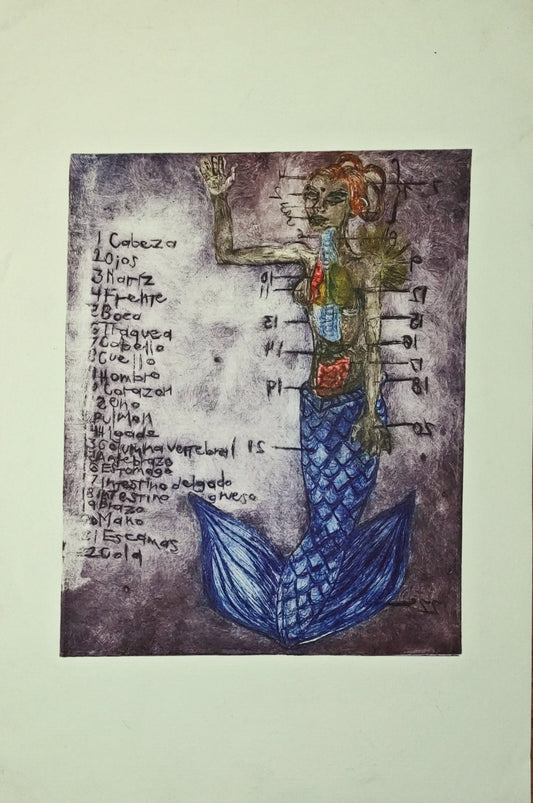 1 Cabeza
2 Ojos
3 Nariz
4 Frente
5 Boca
6 Traquea
7 Cabello
8 Cuello
9 Hombro
Corazon
Zeno
Pulmon
Higado
Columna vertebral 21
Antebrazo
6 Estomago
7 Intestino delgado
18 Intestino grueso
19 Brazo
20 Mano
21 Escamas
22 Cola
10
11
13
14
19
9
12
15
16
17
18
20
22